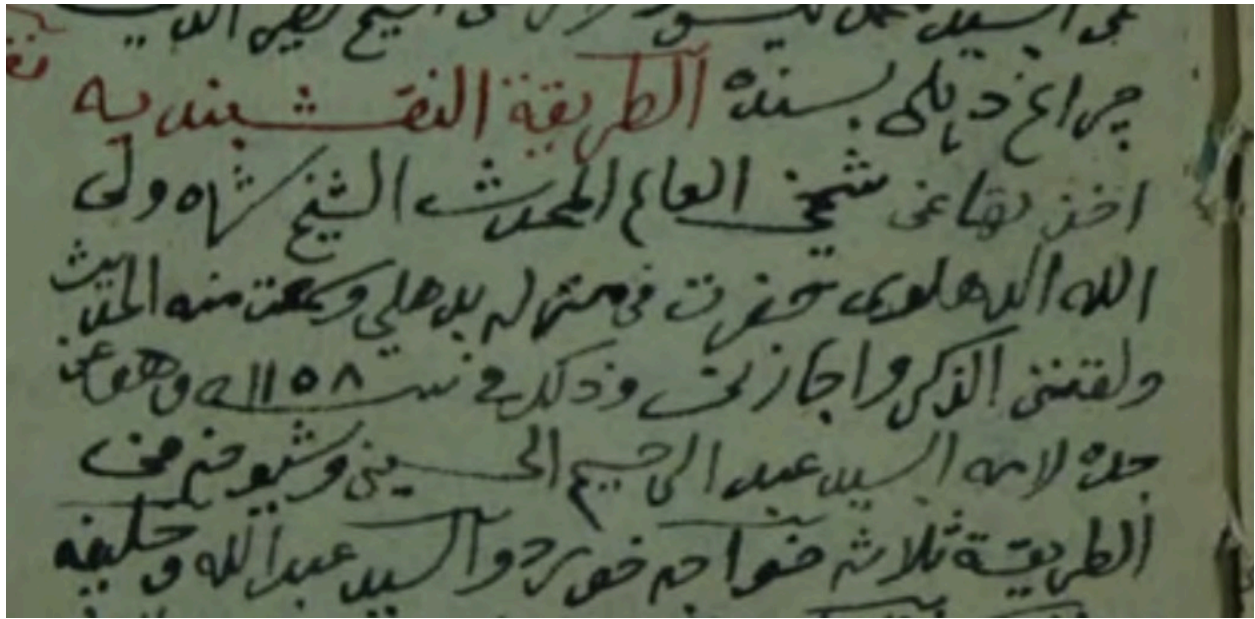 چراغ دهلى بسنده الطريقة النقشبنديه
اخذتها عن شيخي العالم المحدث الشيخ شاه ولى
الله الدهلوى حضرت في منزله بدهلي وسمعت منه الحديث
ولقننى الذكر واجازنى وذلك في سنة ١١٥٨ وهو عن
جده لامه السيد عبد الرحيم الحسينى وشيوخه في
الطريقة ثلاثة خواجه خورد والسيد عبد الله وخليفة